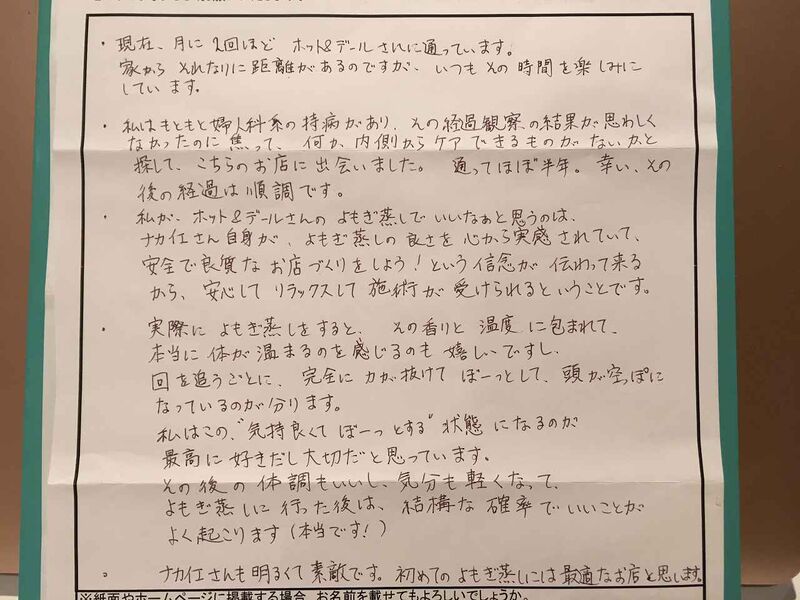 ・現在、月に2回ほど ホット&デールさんに通っています。
家から それなりに距離があるのですが、いつもその時間を楽しみに
しています。
・私はもともと婦人科系の持病があり、その経過観察の結果が思わしく
なかったのに焦って、何か内側からケアできるものがないかと
探して、こちらのお店に出会いました。 通ってほぼ半年。幸い、その
後の経過は順調です。
・ 私が、ホット&デールさんの よもぎ蒸しで いいなぁと思うのは、
ナカ仕さん自身が、よもぎ蒸しの良さを心から実感されていて、
安全で良質な お店づくりをしよう!という信念が 伝わって来る
から、安心して リラックスして 施術が 受けられるということです。
・ 実際に よもぎ蒸しをすると、 その香りと 温度に包まれて、
本当に体が温まるのを感じるのも 嬉しいですし、
回を追うごとに、完全に力が抜けて ぼーっとして、頭が空っぽに
なっているのが分ります。
私はこの、"気持良くて ぼーっとする"状態になるのが
最高に好きだし大切だと思っています。
その後の 体調もいいし、気分も軽くなって、
よもぎ蒸しに行った後は、結構な確率でいいことが
よく起こります(本当です!)
。 ナカ仕さんも明るくて素敵です。初めてのよもぎ蒸しには最適なお店と思います。
※紙面やホームページに掲載する場合、お名前を載せてもよろしいでしょうか。